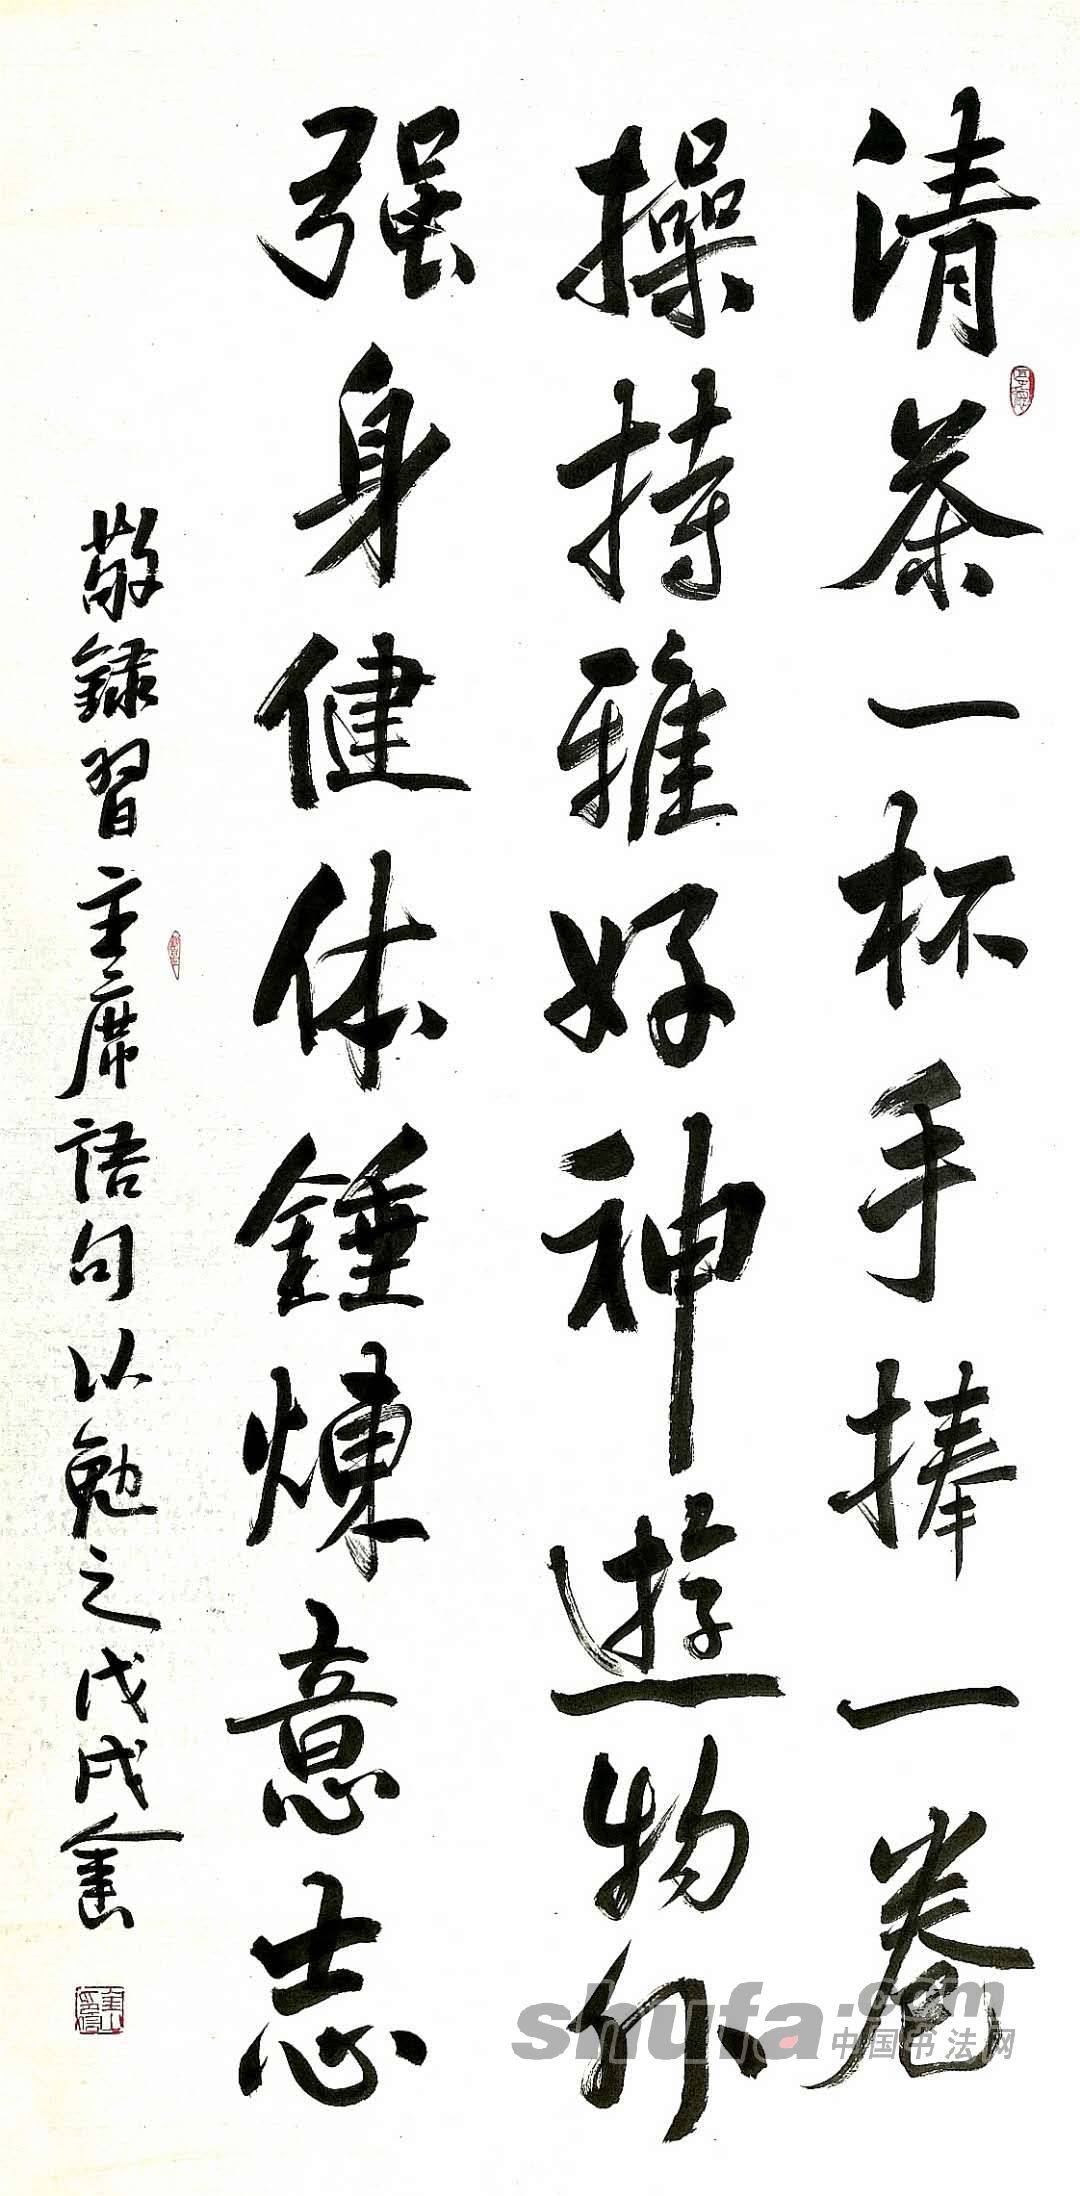 清茶一杯手捧一卷
操持雅好神遊物外
强身健体锤煉意志
敬録習主席語句以勉之戊戌金山
shufa.com
中国书法网